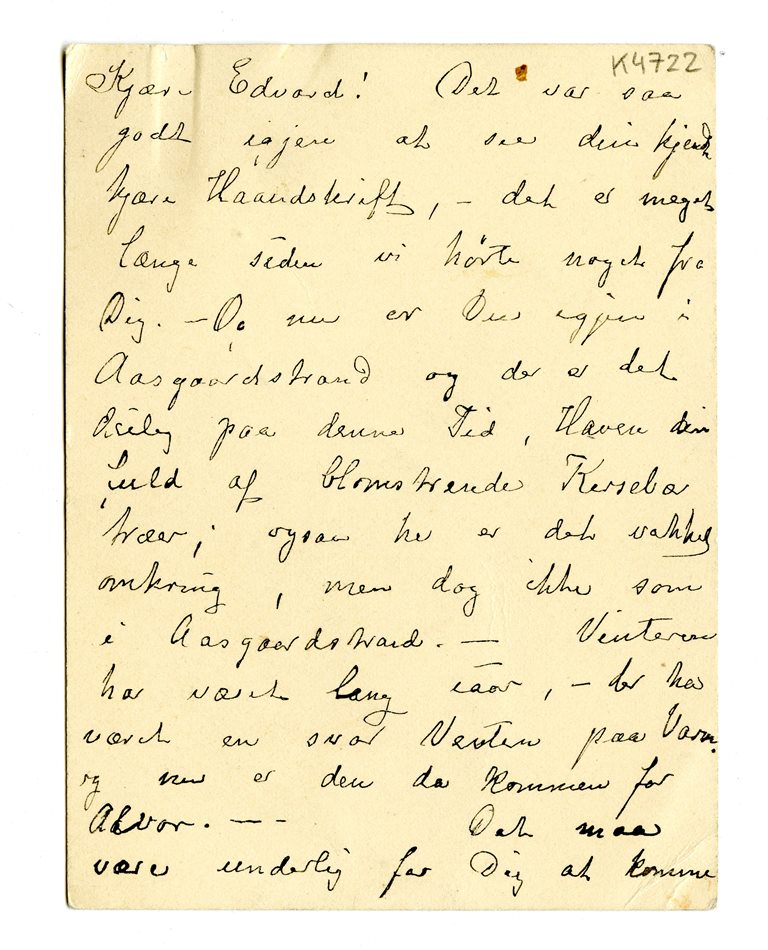 K4722
Kjære Edvard! Det var saa
godt igjen at see din kjendte
kjære Haandskrift, – det er meget
længe siden vi hørte noget fra
Dig. – Ja nu er Du igjen i
Aasgaardstrand og der er det
deilig paa denne Tid, Haven din
fuld af blomstrende Kersebær
træer; ogsaa her er det vakkert
omkring, men dog ikke som
i Aasgaardstrand. — Vinteren
har været lang iaar, – der har
været en svar Venten paa Varm.
og nu er den da kommen for
Alvor. – – Det maa
være underlig for Dig at komme